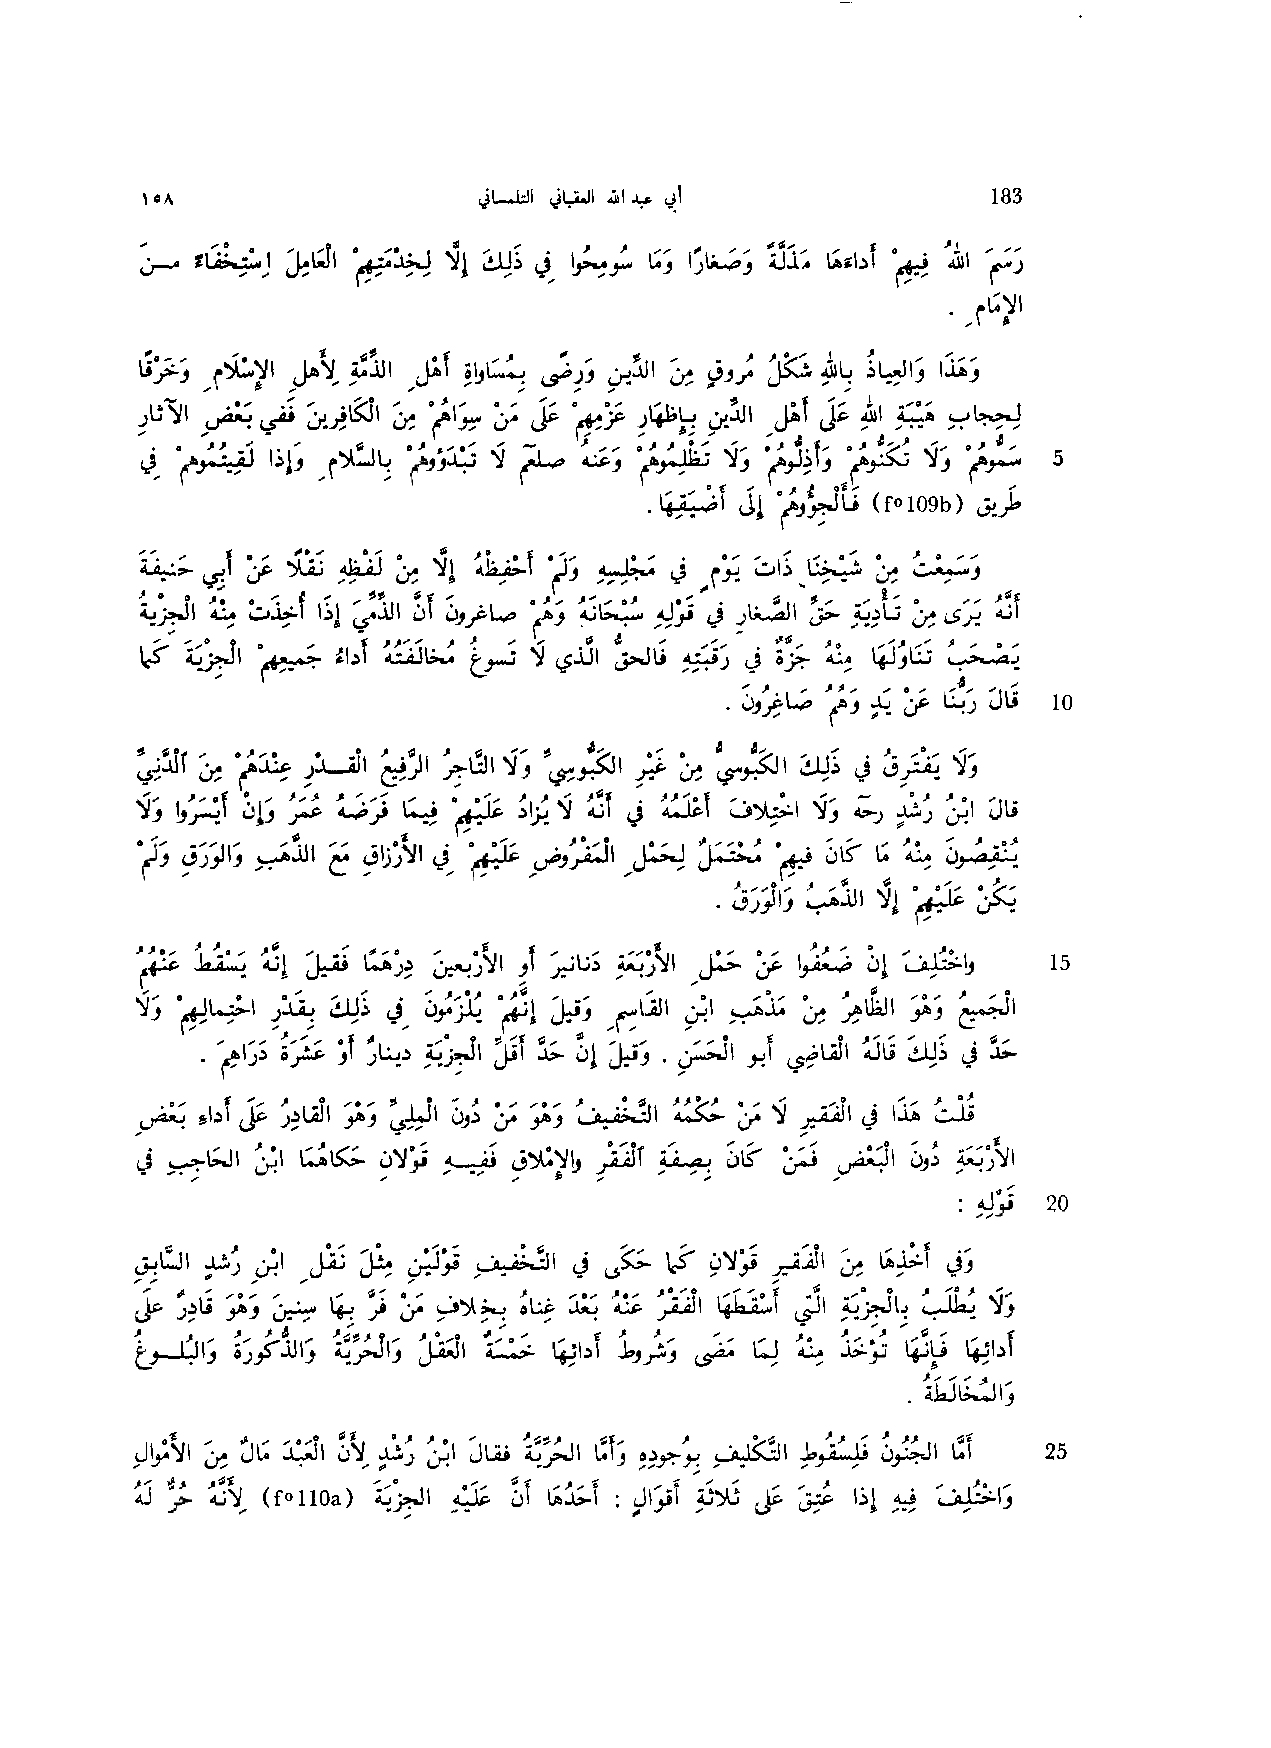 183 أبي عبد الله العقباني التلمساني ١٥٨
رَسَمَ اللهُ فِيهِمْ أداءَهَا مَذَلَّةً وَصَغارًا وَمَا سُومِحُوا فِي ذَلِكَ إِلَّا لِخِدْمَتِهِمْ الْعَامِلَ اِسْتِخْفَاءً مِــنَ
الإِمَامِ .
وَهَذَا وَالعِياذُ بِاللهِ شَكْلُ مُروقٍ مِنَ الدِّينِ وَرِضًى بِمُسَاوَاةِ أَهْلِ الذِّمَّةِ لِأَهلِ الإِسْلَامِ وَخَرْقًا
لِحِجابِ هَيْبَةِ اللهِ عَلَى أَهْلِ الدِّينِ بِإِظهَارِ عَزْمِهِمْ عَلَى مَنْ سِوَاهُمْ مِنَ الكافِرِينَ فَفي بَعْضِ الآثارِ
5 سَمُّوهُمْ وَلَا تَكَنُّوهُمْ وَأَذِلُّوهُمْ وَلَا تَظْلِمُوهُمْ وَعَنهُ صلعم لَا تَبْدَؤوهُمْ بالسَّلامِ وإذا لَقِيتُمُوهمْ فِي
طَرِيق (f° 109b) فَأَلْجِؤُوهُمْ إِلَى أَضْيَقِهَا .
وَسَمِعْتُ مِنْ شَيْخِنَا ذَاتَ يَوْمٍ في مَجْلِسِهِ وَلَمْ أَحْفِظْهُ إِلَّا مِنْ لَفْظِهِ نَقْلًا عَنْ أَبِي حَنِيفَةَ
أنَّهُ يَرَى مِنْ تَأْدِيَةِ حَقِّ الصَّغارِ فِي قَوْلِهِ سُبْحَانَهُ وَهُمْ صاغرونَ أنَّ الذمِّيَ إِذَا أُخِذَتْ مِنْهُ الْجِزْيَةُ
يَصْحَبُ تَنَاوُلَهَا مِنْهُ جَرَّةٌ فِي رَقَبَتِهِ فالحقُ الَّذي لا تَسوغُ مُخالَفَتُهُ أداءُ جَميعِهِمْ الجِزْيَةَ كَمَا
10 قَالَ رَبُّنَا عَنْ يَدٍ وَهُمْ صَاغِرُونَ .
وَلَا يَفْتَرِقُ فِي ذَلِكَ الكَبُّوسِيُّ مِنْ غَيْرِ الكَبُّوسِيِّ وَلَا التَّاجِرُ الرَّفِيعُ الْقَـدْرِ عِنْدَهُمْ مِنَ آلدَّنِيِّ
قالَ ابْنُ رُشْدٍ رحه وَلَا اختِلافَ أعْلَمُهُ فِي أَنَّهُ لَا يُزادُ عَلَيْهِمْ فِيمَا فَرَضَهُ عُمَرُ وَإِنْ أَيْسَرُوا وَلَا
يُنْقِصُونَ مِنْهُ مَا كَانَ فيهِمْ مُحْتَمَلٌ لِحَمْلِ الْمَفْرُوضِ عَلَيْهِمْ فِي الأَرْزاقِ مَعَ الذَّهَبِ وَالوَرَقِ وَلَمْ
يَكُنْ عَلَيْهِمْ إِلَّا الذَّهَبُ وَالْوَرَقُ .
15 واخْتُلِفَ إِنْ ضَعُفُوا عَنْ حَمْلِ الأَرْبَعَةِ دَنانيرَ أو الأَرْبَعينَ دِرْهَمًا فَقيلَ إنَّهُ يَسْقُطُ عَنْهُمُ
الْجَمِيعُ وَهْوَ الظَاهِرُ مِنْ مَذْهَبِ ابْنِ القَاسِمِ وَقيلَ إِنَّهُمْ يُلْزَمُونَ فِي ذَلِكَ بِقَدْرِ احتِمالِهِمْ وَلَا
حَدَّ فِي ذَلِكَ قَالَهُ الْقَاضِي أَبو الحَسَنِ . وَقِيلَ إِنَّ حَدَّ أقَلِّ الْجِزْيَةِ دينارٌ أَوْ عَشْرَةُ دَرَاهِمَ .
قُلْتُ هَذَا فِي الْفَقيرِ لَا مَنْ حُكْمُهُ التَّخْفِيفُ وَهْوَ مَنْ دُونَ الْمِلِيِّ وَهْوَ القَادِرُ عَلَى أداءِ بَعْضِ
الأَرْبَعَةِ دُونَ الْبَعْضِ فَمَنْ كَانَ بِصِفَةِ آلْفَقْرِ والإمْلاقِ فَفِيــهِ قَوْلَانِ حَكَاهُمَا ابْنُ الْحَاجِبِ فِي
20 قَوْلِهِ :
وَفِي أَخْذِهَا مِنَ الْفَقيرِ قَوْلَانِ كَمَا حَكَى في التَّخْفيفِ قَوْلَيْنِ مِثْلَ نَقْلِ ابْنِ رُشْدٍ السَّابِقِ
وَلَا يُطْلَبُ بِالْجِزْيَةِ الَّتِي أَسْقَطَهَا الْفَقْرُ عَنْهُ بَعْدَ غِناهُ بِخِلافِ مَنْ فَرَّ بِهَا سِنِينَ وَهْوَ قَادِرٌ عَلَى
أدائِهَا فَإِنَّهَا تُؤْخَذُ مِنْهُ لِمَا مَضَى وَشُروطُ أدائِهَا خَمْسَةٌ الْعَقْلُ وَالْحُرِّيَّةُ وَالذُّكُورَةُ وَالبُلــوغُ
وَالمُخَالَطَةُ .
25 أمَّا الجُنُونُ فَلِسُقُوطِ التَّكْلِيفِ بِوُجودِهِ وَأَمَّا الحُرِّيَّةُ فقالَ ابْنُ رُشْدٍ لِأَنَّ العَبْدَ مَالٌ مِنَ الأَمْوالِ
وَاخْتُلِفَ فِيهِ إذَا عُتِقَ عَلى ثَلاثَةِ أقوالٍ : أحَدُهَا أنَّ عَلَيْهِ الجِزْيَةَ (f° 110a) لِأَنَّهُ حُرٌّ لَهُ